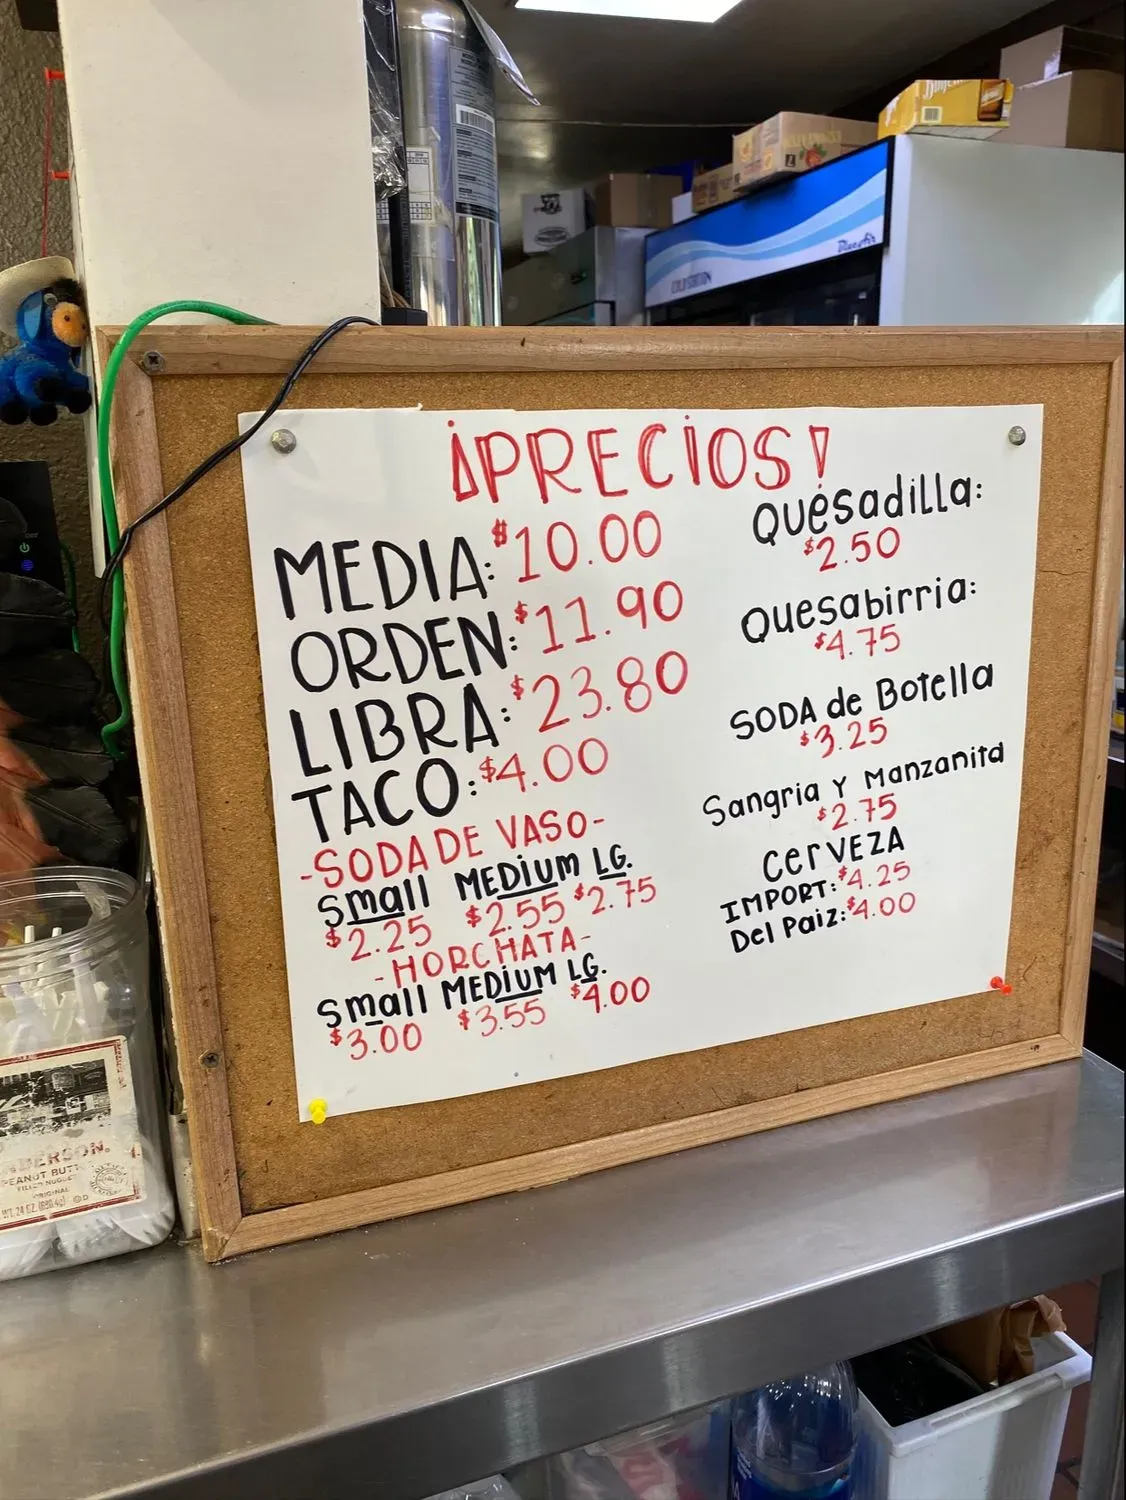 ¡PRECiOS!
MEDIA: $10.00
ORDEN: $11.90
LIBRA: $23.80
TACO: $4.00
-SODA DE VASO-
Small MEDiUM LG.
$2.25 $2.55 $2.75
-HORCHATA-
Small MEDiUM LG.
$3.00 $3.55 $4.00
Quesadilla:
$2.50
Quesabirria:
$4.75
SODA de Botella
$3.25
Sangria Y Manzanita
$2.75
CerVEZA
IMPORT: $4.25
Del Paiz: $4.00
Blue Air
PEANUT BUTT
ORIGINAL